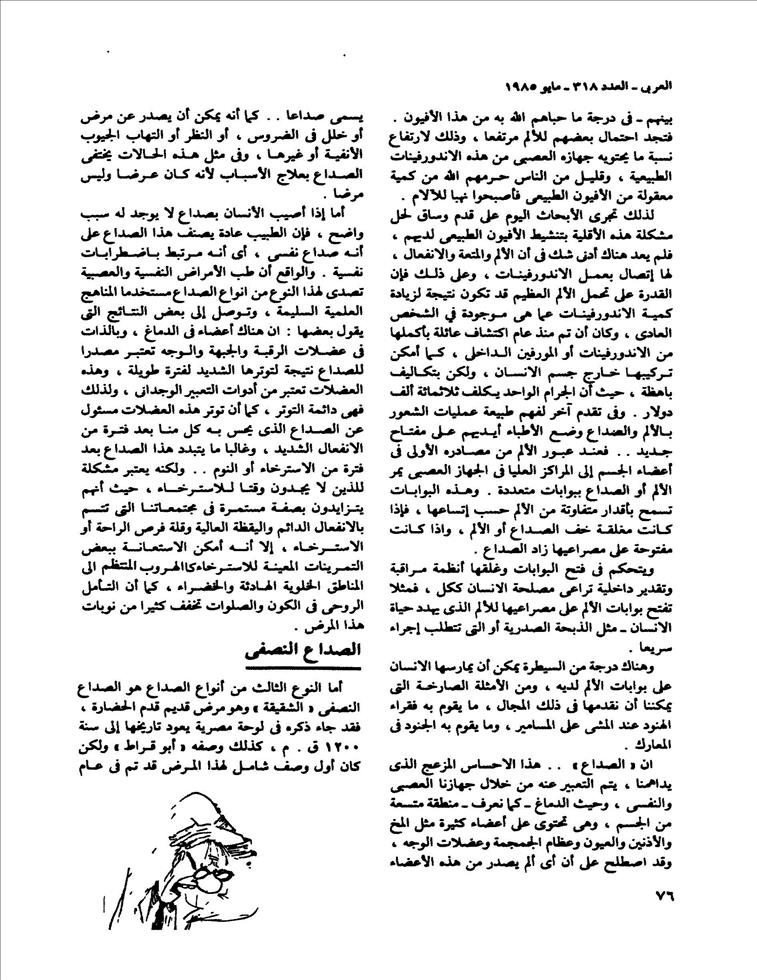 العربى - العدد ٣١٨ - مايو ١٩٨٥
بينهم - فى درجة ما حباهم الله به من هذا الأفيون .
فتجد احتمال بعضهم للألم مرتفعا ، وذلك لارتفاع
نسبة ما يحتويه جهازه العصبى من هذه الاندورفينات
الطبيعية ، وقليل من الناس حرمهم الله من كمية
معقولة من الأفيون الطبيعى فأصبحوا نهبا للآلام .
لذلك تجرى الأبحاث اليوم على قدم وساق لحل
مشكلة هذه الأقلية بتنشيط الأفيون الطبيعى لديهم ،
فلم يعد هناك أدنى شك فى أن الألم والمتعة والانفعال ،
لها إتصال بعمل الاندورفينات ، وعلى ذلك فإن
القدرة على تحمل الألم العظيم قد تكون نتيجة لزيادة
كمية الاندورفينات عما هى موجودة في الشخص
العادى ، وكان أن تم منذ عام اكتشاف عائلة بأكملها
من الاندورفينات أو المورفين الداخلى ، كما أمكن
تركيبها خارج جسم الانسان ، ولكن بتكاليف
باهظة ، حيث أن الجرام الواحد يكلف ثلاثمائة ألف
دولار . وفى تقدم آخر لفهم طبيعة عمليات الشعور
بالألم والصداع وضع الأطباء أيديهم على مفتاح
جديد .. فعند عبور الألم من مصادره الأولى فى
أعضاء الجسم إلى المراكز العليا فى الجهاز العصبى يمر
الألم أو الصداع ببوابات متعددة . وهذه البوابات
تسمح بأقدار متفاوتة من الألم حسب إتساعها ، فإذا
كانت مغلقة خف الصداع أو الألم ، واذا كانت
مفتوحة على مصراعيها زاد الصداع .
ويتحكم فى فتح البوابات وغلقها أنظمة مراقبة
وتقدير داخلية تراعى مصلحة الانسان ككل ، فمثلا
تفتح بوابات الألم على مصراعيها للألم الذى يهدد حياة
الانسان - مثل الذبحة الصدرية أو التى تتطلب إجراء
سريعا .
وهناك درجة من السيطرة يمكن أن يمارسها الانسان
على بوابات الألم لديه ، ومن الأمثلة الصارخة التى
يمكننا أن نقدمها فى ذلك المجال ، ما يقوم به فقراء
الهنود عند المشى على المسامير ، وما يقوم به الجنود فى
المعارك .
ان « الصداع » .. هذا الاحساس المزعج الذى
يداهمنا ، يتم التعبير عنه من خلال جهازنا العصبى
والنفسى ، وحيث الدماغ - كما نعرف - منطقة متسعة
من الجسم ، وهى تحتوى على أعضاء كثيرة مثل المخ
والأذنين والعيون وعظام الجمجمة وعضلات الوجه ،
وقد اصطلح على أن أى ألم يصدر من هذه الأعضاء
يسمى صداعا .. كما أنه يمكن أن يصدر عن مرض
أو خلل فى الضروس ، أو النظر أو التهاب الجيوب
الأنفية أو غيرها ، وفى مثل هذه الحالات يختفى
الصداع بعلاج الأسباب لأنه كان عرضا وليس
مرضا .
أما إذا أصيب الأنسان بصداع لا يوجد له سبب
واضح ، فإن الطبيب عادة يصنف هذا الصداع على
أنه صداع نفسى ، أى أنه مرتبط باضطرابات
نفسية . والواقع أن طب الأمراض النفسية والعصبية
تصدى لهذا النوع من انواع الصداع مستخدما المناهج
العلمية السليمة ، وتوصل إلى بعض النتائج التى
يقول بعضها : ان هناك أعضاء فى الدماغ ، وبالذات
فى عضلات الرقبة والجبهة والوجه تعتبر مصدرا
للصداع نتيجة لتوترها الشديد لفترة طويلة ، وهذه
العضلات تعتبر من أدوات التعبير الوجدانى ، ولذلك
فهى دائمة التوتر ، كما أن توتر هذه العضلات مسئول
عن الصداع الذى يحس به كل منا بعد فترة من
الانفعال الشديد ، وغالبا ما يتبدد هذا الصداع بعد
فترة من الاسترخاء أو النوم .. ولكنه يعتبر مشكلة
للذين لا يجدون وقتا للاسترخاء ، حيث أنهم
يتزايدون بصفة مستمرة فى مجتمعاتنا التى تتسم
بالانفعال الدائم واليقظة العالية وقلة فرص الراحة أو
الاسترخاء ، إلا أنه أمكن الاستعانة ببعض
التمرينات المعينة للاسترخاء كالهروب المنتظم الى
المناطق الخلوية الهادئة والخضراء ، كما أن التأمل
الروحى فى الكون والصلوات تخفف كثيرا من نوبات
هذا المرض .
الصداع النصفى
أما النوع الثالث من أنواع الصداع هو الصداع
النصفى « الشقيقة » وهو مرض قديم قدم الحضارة ،
فقد جاء ذكره فى لوحة مصرية يعود تاريخها إلى سنة
١٢٠٠ ق . م ، كذلك وصفه « أبو قراط » ولكن
كان أول وصف شامل لهذا المرض قد تم فى عام
٧٦